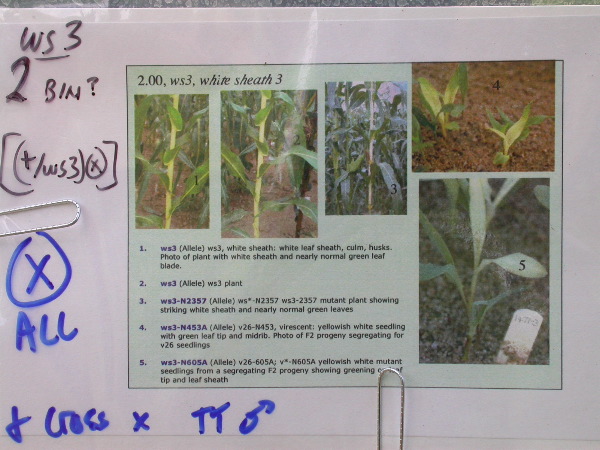 ws3
2 BIN?
[(+/ws3)(x)]
X
ALL
2.00, ws3, white sheath 3
3
4
5
1. ws3 (Allele) ws3, white sheath: white leaf sheath, culm, husks.
Photo of plant with white sheath and nearly normal green leaf
blade.
2. ws3 (Allele) ws3 plant
3. ws3-N2357 (Allele) ws*-N2357 ws3-2357 mutant plant showing
striking white sheath and nearly normal green leaves
4. ws3-N453A (Allele) v26-N453, virescent: yellowish white seedling
with green leaf tip and midrib. Photo of F2 progeny segregating for
v26 seedlings
5. ws3-N605A (Allele) v26-605A; v*-N605A yellowish white mutant
seedlings from a segregating F2 progeny showing greening leaf
tip and leaf sheath
+ CROSS x TT ♂